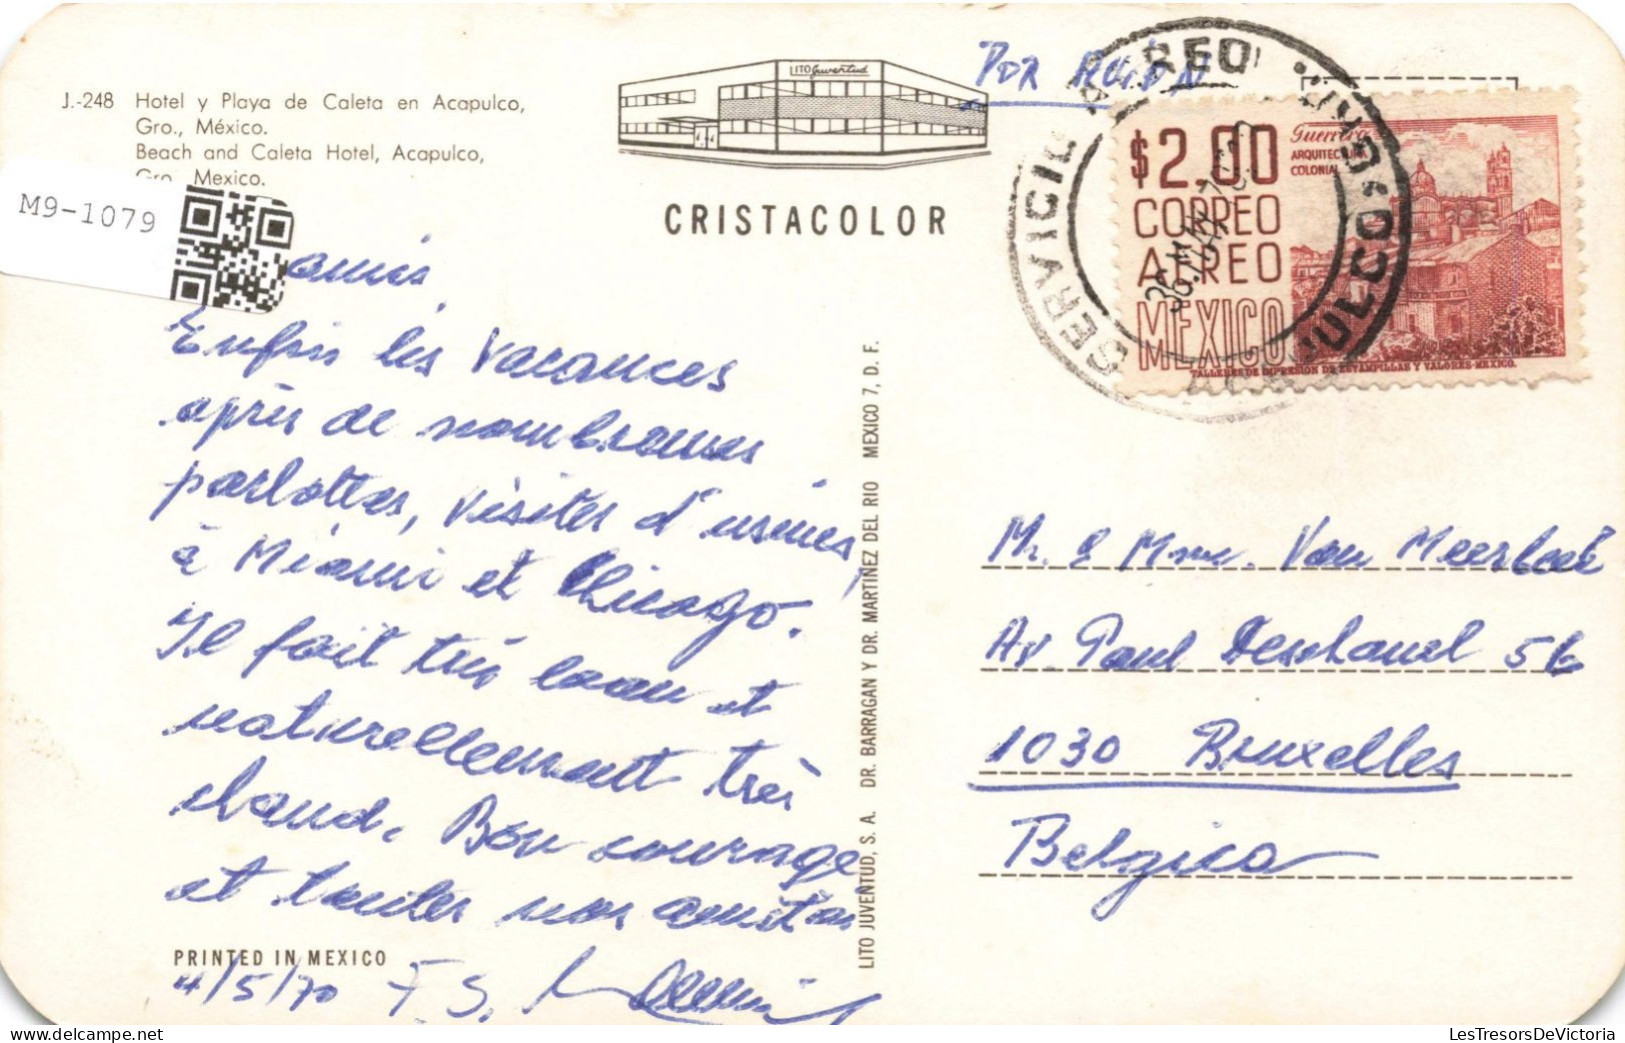 J.-248 Hotel y Playa de Caleta en Acapulco,
Gro., México.
Beach and Caleta Hotel, Acapulco,
Gro Mexico.
M9-1079
LITO Juventud
CRISTACOLOR
Por Avión
SERVICIO AEREO
ACAPULCO
$2.00
CORREO
AEREO
MEXICO
Guerrero
ARQUITECTURA
COLONIAL
TALLERES DE IMPRESION DE ESTAMPILLAS Y VALORES-MEXICO.
amis,
Enfin les vacances
après de nombreuses
parlottes, visites d'usines,
à Miami et Chicago.
Il fait très beau et
naturellement très
chaud. Bon courage
et toutes nos amitiés
PRINTED IN MEXICO
4/5/70 F. S.
LITO JUVENTUD, S. A. DR. BARRAGAN Y DR. MARTINEZ DEL RIO MEXICO 7, D. F.
Mr. & Mme. Van Meerbeek
Av. Paul Deschanel 56
1030 Bruxelles
Belgica
LesTresorsDeVictoria